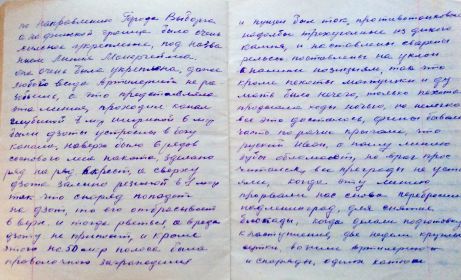 по направлению города Выборга
а по финской границе было очень
сильное укрепленье, под назва
нием Линия Маннергейма.
она очень была укреплена, даже
любого вида артилерией не раз
бъёшь, а это представляла
эта линия, проходил канал
глубиной 7 м и шириной 6 м и
были дзоты устроены в боку
канала, наверх было 6 рядов
соснового леса наката, зделано
ряд на ряд в крест, а сверху
дзота залито резиной в 1 метр
так что снаряд попадет
на дзот, то его отбрасывает
в верх и тогда рветься а вреда
дзоту не приносит, и кроме
этого на 50 метр полосе, была
проволочного заграждения
и пущен был ток, противотанковые
надолбы трехугольные из дикого
камня, и поставлены сварены
рельсы поставлены на уклон
к нашим позициям, так что
кроме пехоты матушки и ду
мать было нечего, только пехота
продвигала ходы ночью, но нелегко
все это досталось, финны бывало
часто по рации кричали, что
руский Иван, о нашу линию
зубы обломает, но враг прос
читался, все преграды не усто
яли, когда эту линию
прорвали нас снова перебросили
под Ленинград, для снятия
блокады, когда делали подготовку
к наступлению две недели круглые
сутки, возили артилерию
и снаряды, одних катюш